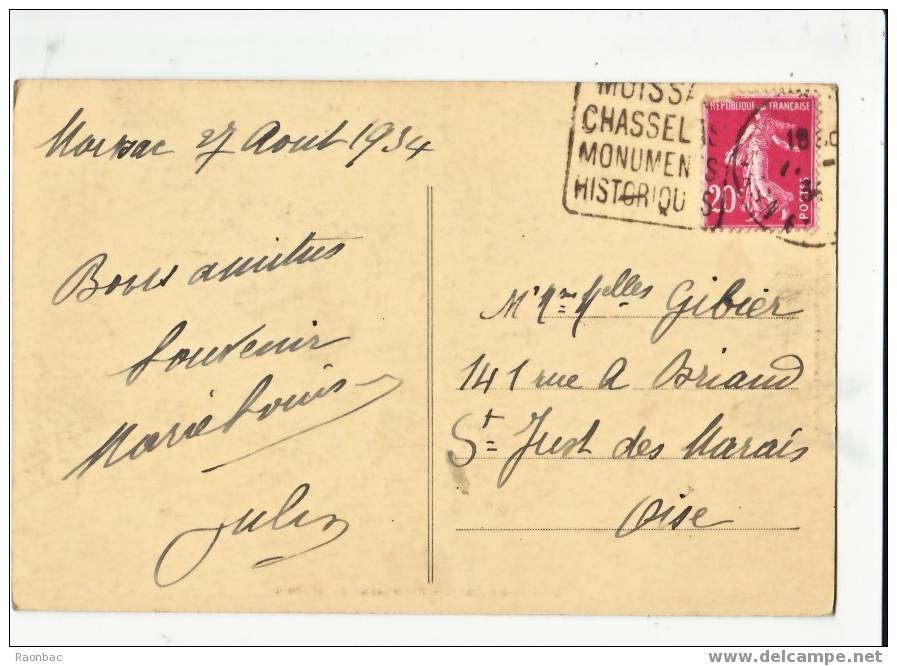 Moissac 27 Août 1934
Bons amitiés
Souvenir
Marie Louis
MOISSA
CHASSEL
MONUMEN S
HISTORIQU S
REPUBLIQUE FRANÇAISE
20c
POSTES
Mr Mme Melles Gibier
141 rue A Briand
St Just des Marais
Oise
Raonbac
www.delcampe.net